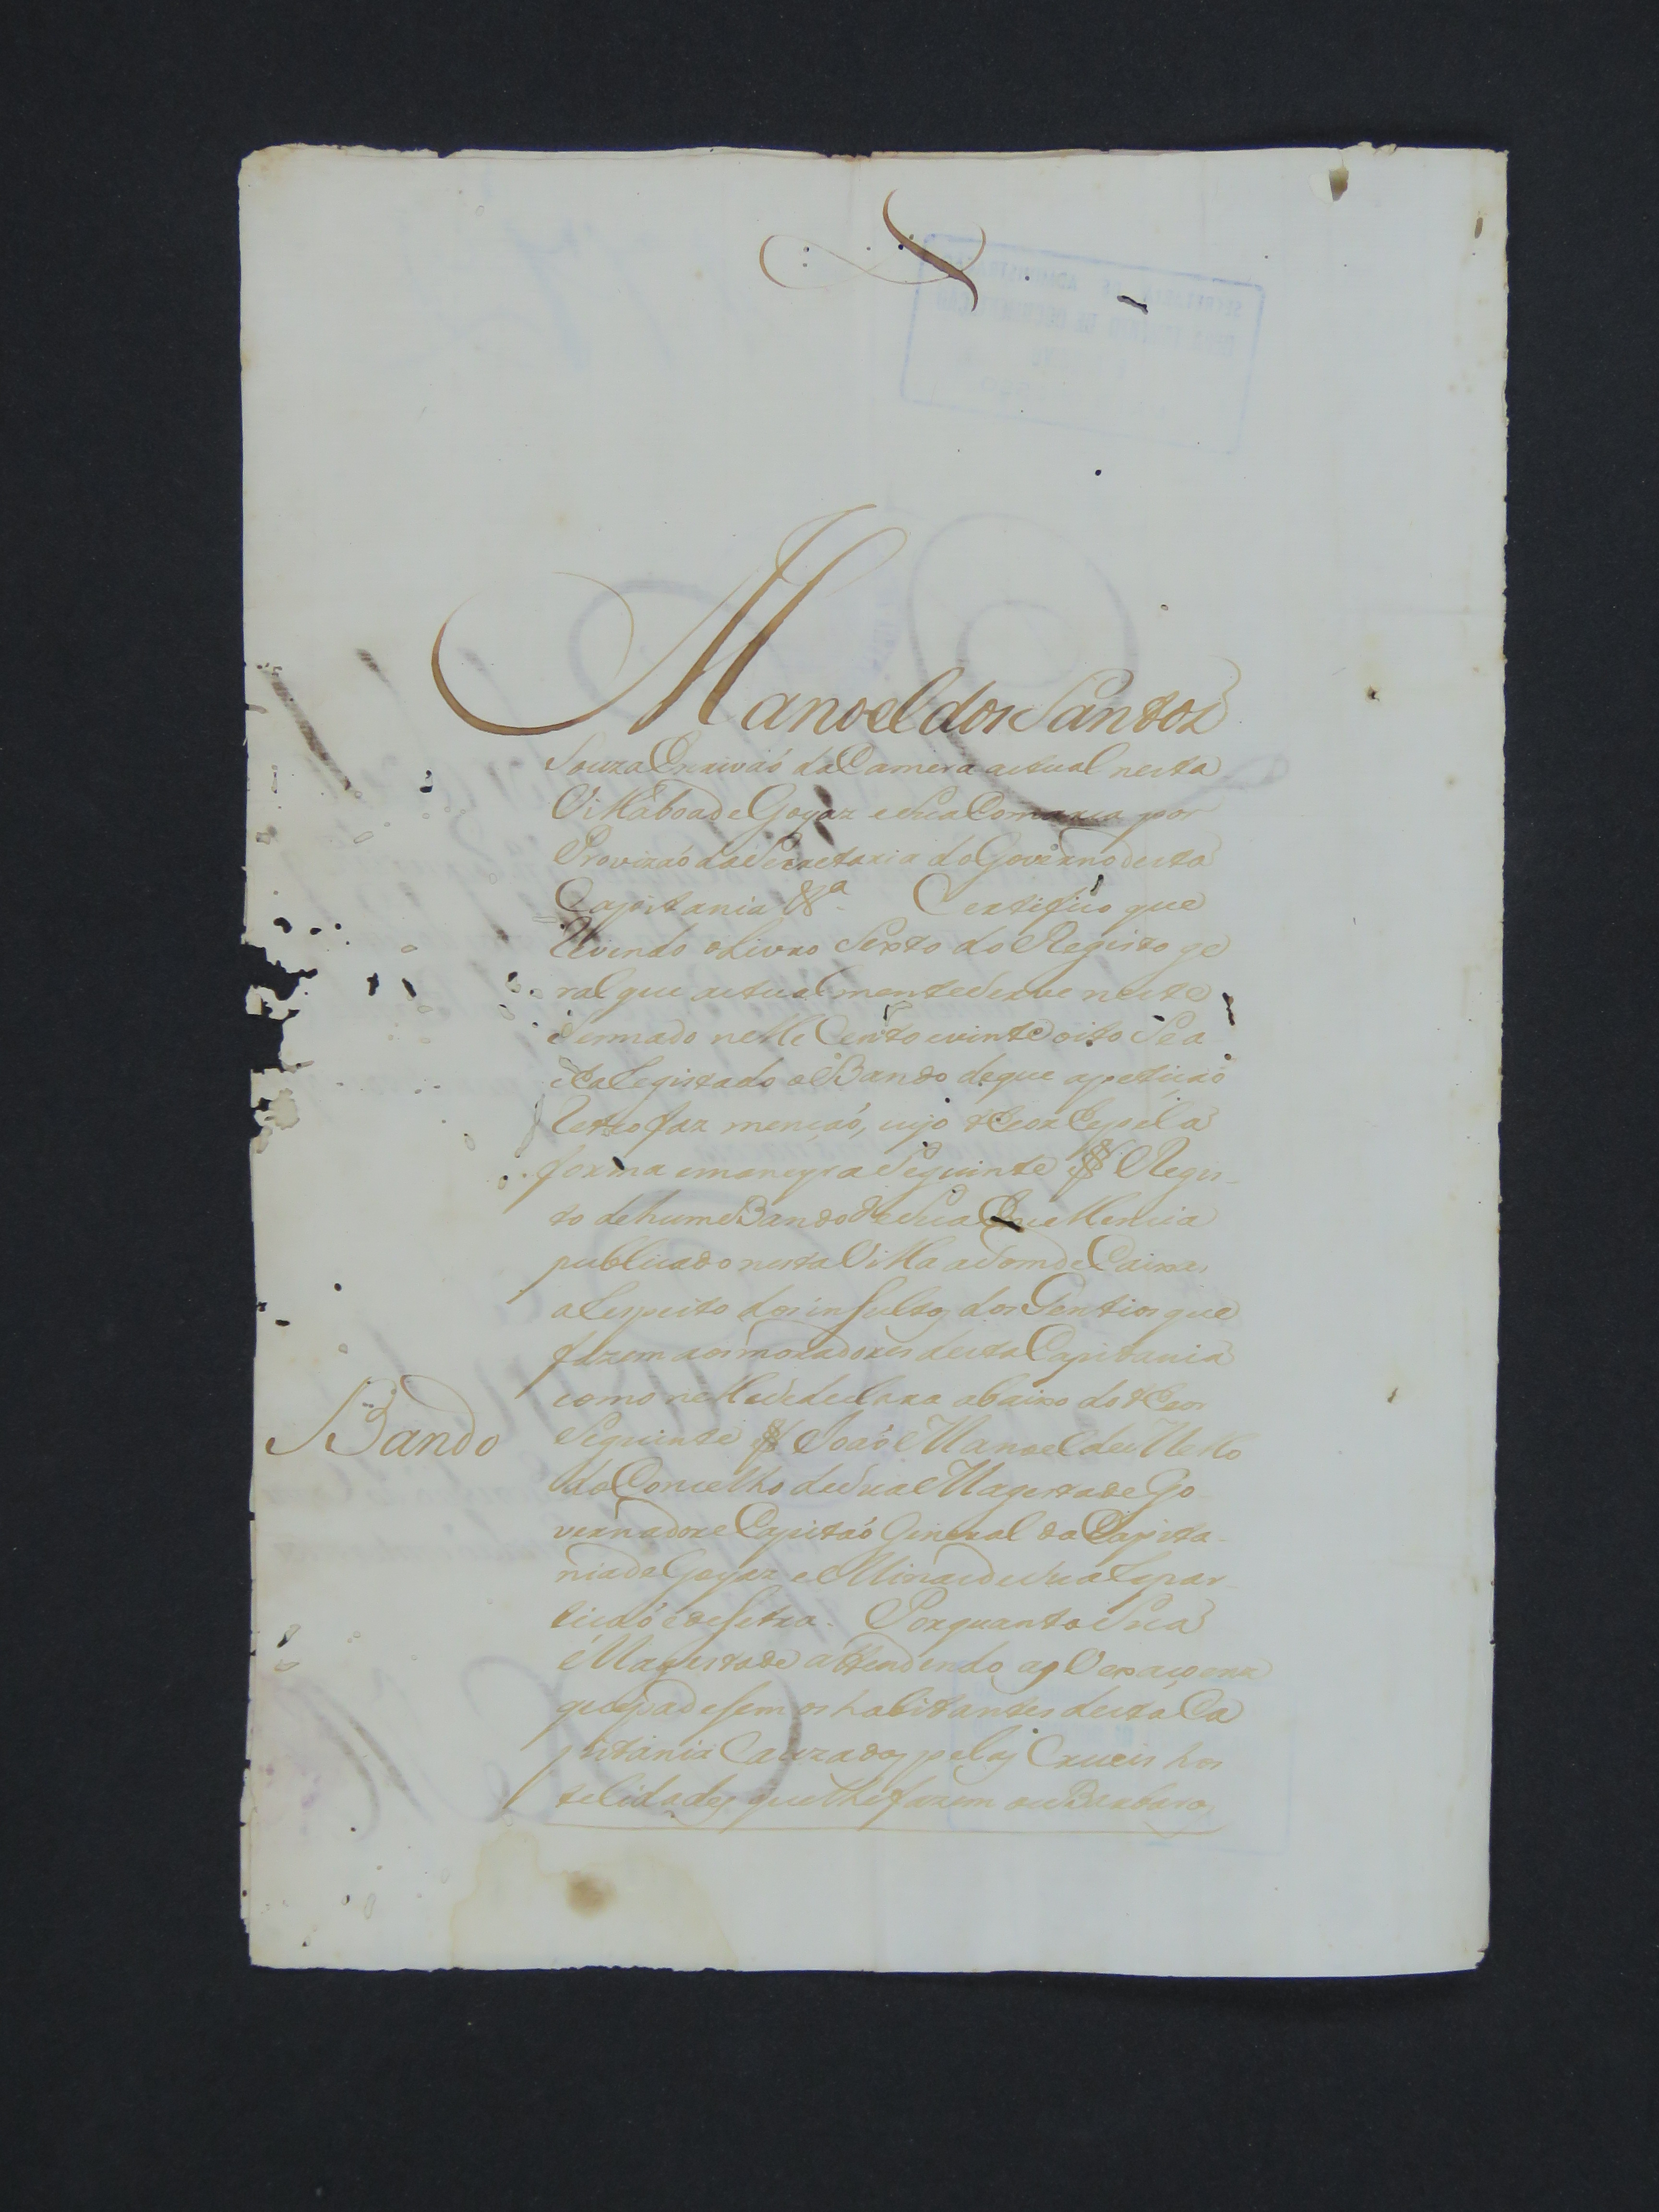 Manoel dos Santos
Souza Escrivaó da Camera actual nesta
Villa boa de Goyaz e sua Comarca por
Provizaó da Secretaria do Governo desta
Capitania &ª Certifico que
Revendo o Livro Sexto do Registo ge
ral que actual mente serve neste
Sennado nelle Cento e vinte oito Se a
cha Registado o Bando de que a petiçaó
Retro faz mençaó, cujo theor he pela
forma e maneyra Seguinte // Regis-
to de hum Bando de Sua Excellencia
publicado nesta Villa a Som de Caixas
a Respeito dos insultos dos Gentios que
fazem aos moradores desta Capitania
como nelle se declara abaixo do theor
Bando
Seguinte // Joaó Manoel de Mello
do Concelho de Sua Magestade Go
vernador e Capitaó General da Capita-
nia de Goyaz e Minas de sua Repar-
tiçaó Porquanto Sua
Magestade attendendo as Vexaçoens
que padesem os habitantes desta Ca
pitania Cauzados pelas Crueis hos
telidades que lhe fazem os Barbaros